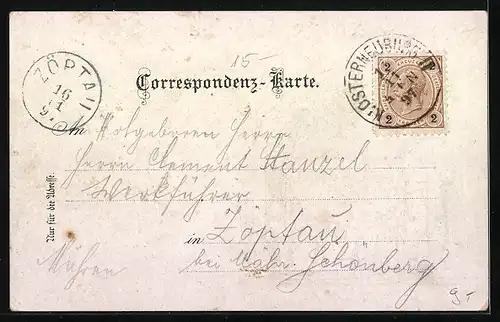 15-
ZÖPTAU
16
11
9
KLOSTERNEUBURG
2 2
2 2
Correspondenz-Karte.
An Wolgeboren Herrn
Herrn Clement Hanzel
Werkführer
in Zöptau
Mähren bei Mähr. Schönberg
Nur für die Adresse.
9-